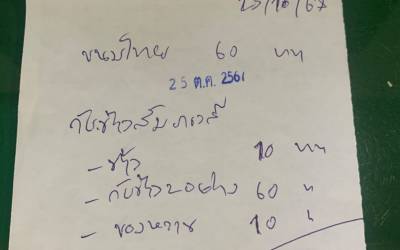 25/10/67
ขนมไทย 60 บาท
25 ต.ค. 2561
กับข้าวสัมภเวสี
- ข้าว 10 บาท
- กับข้าว 2 อย่าง 60 "
- ของหวาน 10 "